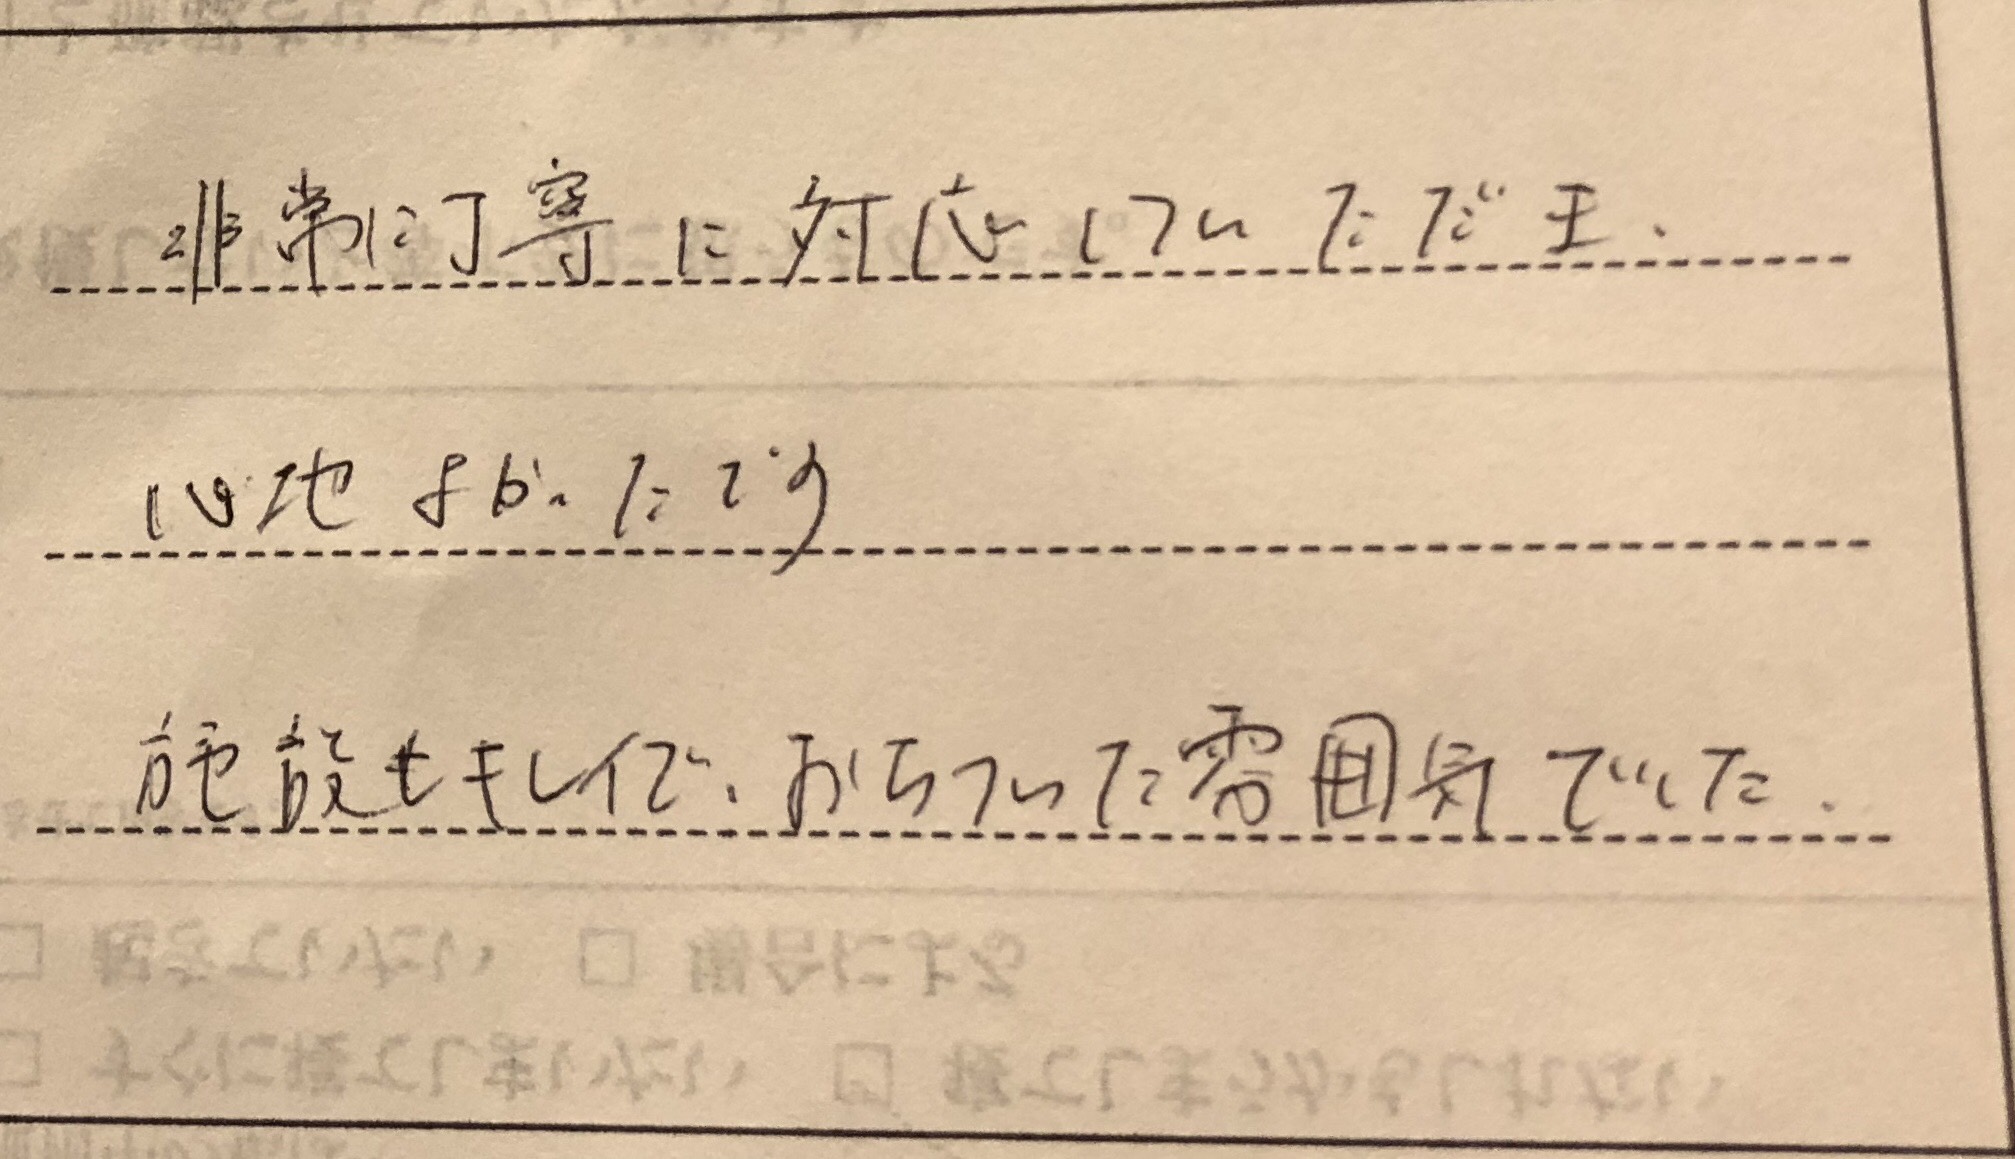 非常に丁寧に対応していただき、
心地よかったです
施設もキレイで、おちついた雰囲気でした。